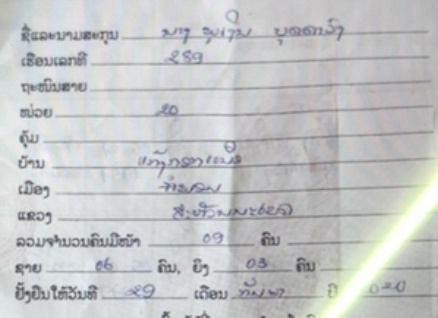 ຊື່ແລະນາມສະກຸນ ນາງ ພູເງິນ ບຸດດາວົງ
ເຮືອນເລກທີ 289
ຖະໜົນສາຍ
ໜ່ວຍ 20
ຄຸ້ມ
ບ້ານ
ເມືອງ
ແຂວງ ສະຫວັນນະເຂດ
ລວມຈຳນວນຄົນມີໜ້າ 09 ຄົນ
ຊາຍ 06 ຄົນ, ຍິງ 03 ຄົນ
ຢັ້ງຢືນໃຫ້ວັນທີ 29 ເດືອນ ກັນຍາ ປີ 020